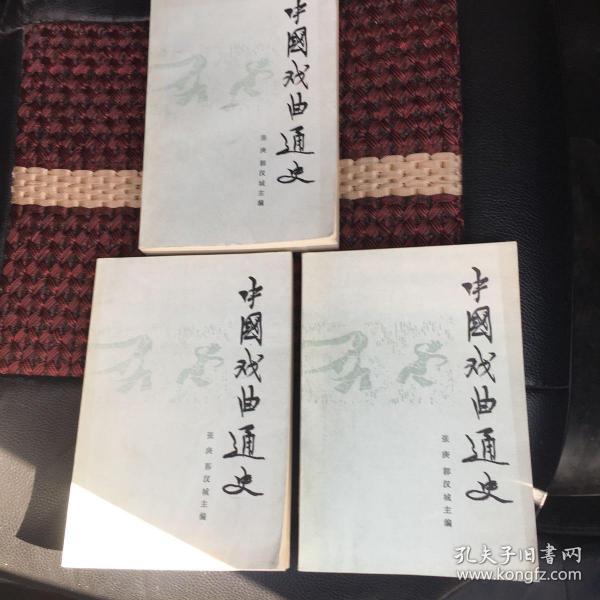 中國戏曲通史
张庚 郭汉城主编
中國戏曲通史
张庚 郭汉城主编
中國戏曲通史
张庚 郭汉城主编
孔夫子旧書网
www.kongfz.com